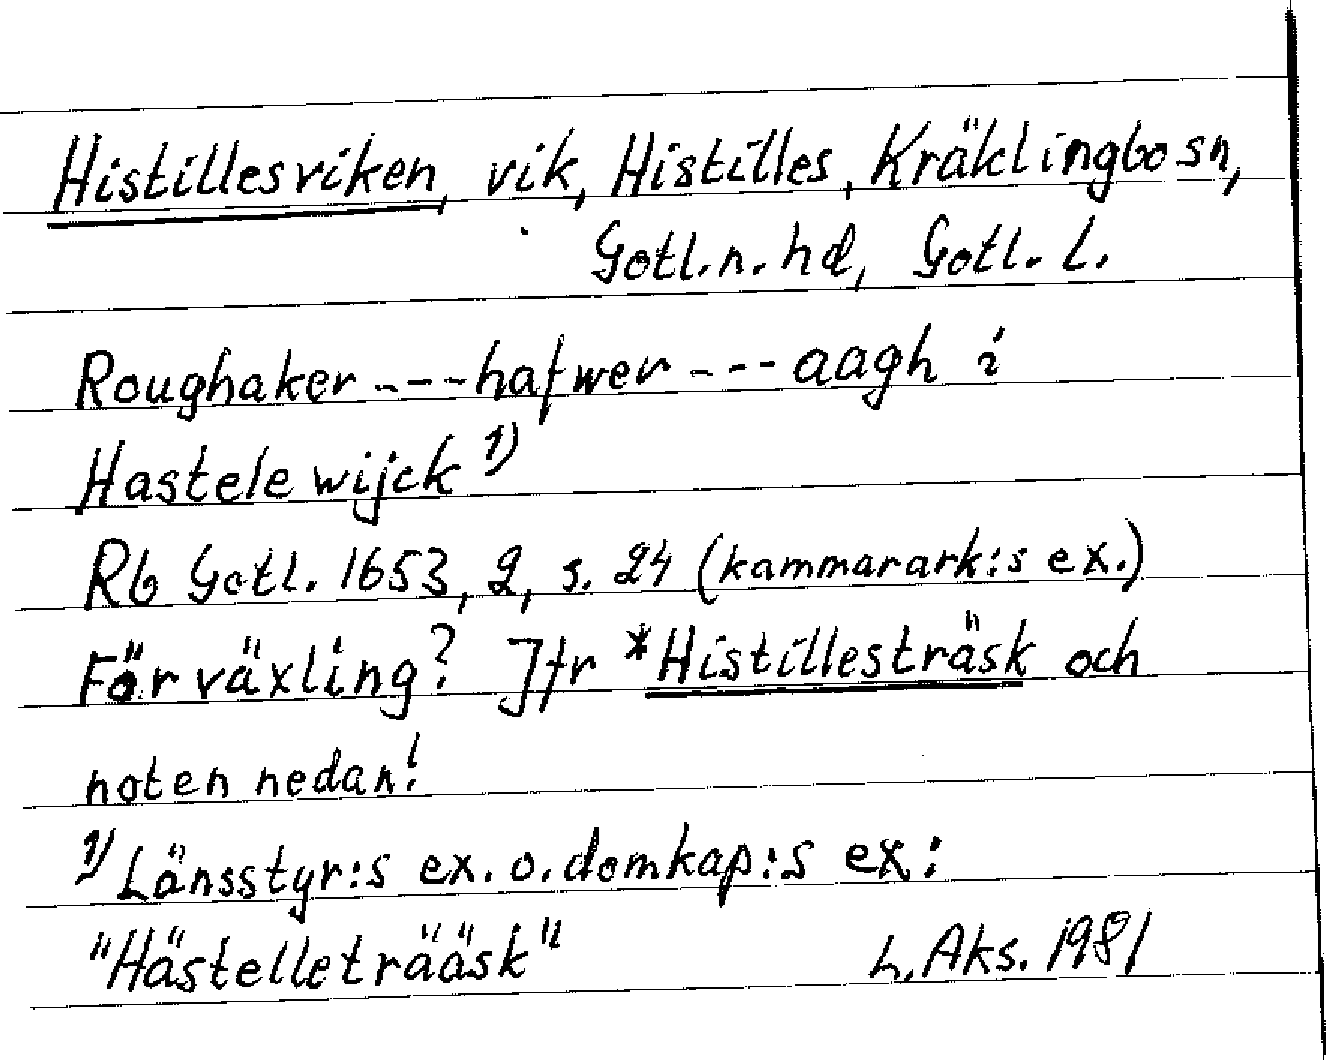 Histillesviken, vik, Histilles, Kräklingbo sn,
Gotl. n. hd, Gotl. l.
Roughaker ---hafwer ---aagh i
Hastele wijck 1)
Rb Gotl. 1653, 2, s. 24 (kammarark:s ex.)
Förväxling? Jfr *Histillesträsk och
noten nedan!
1) Länsstyr:s ex. o. domkap:s ex:
"Hästelleträäsk" L. Aks. 1981